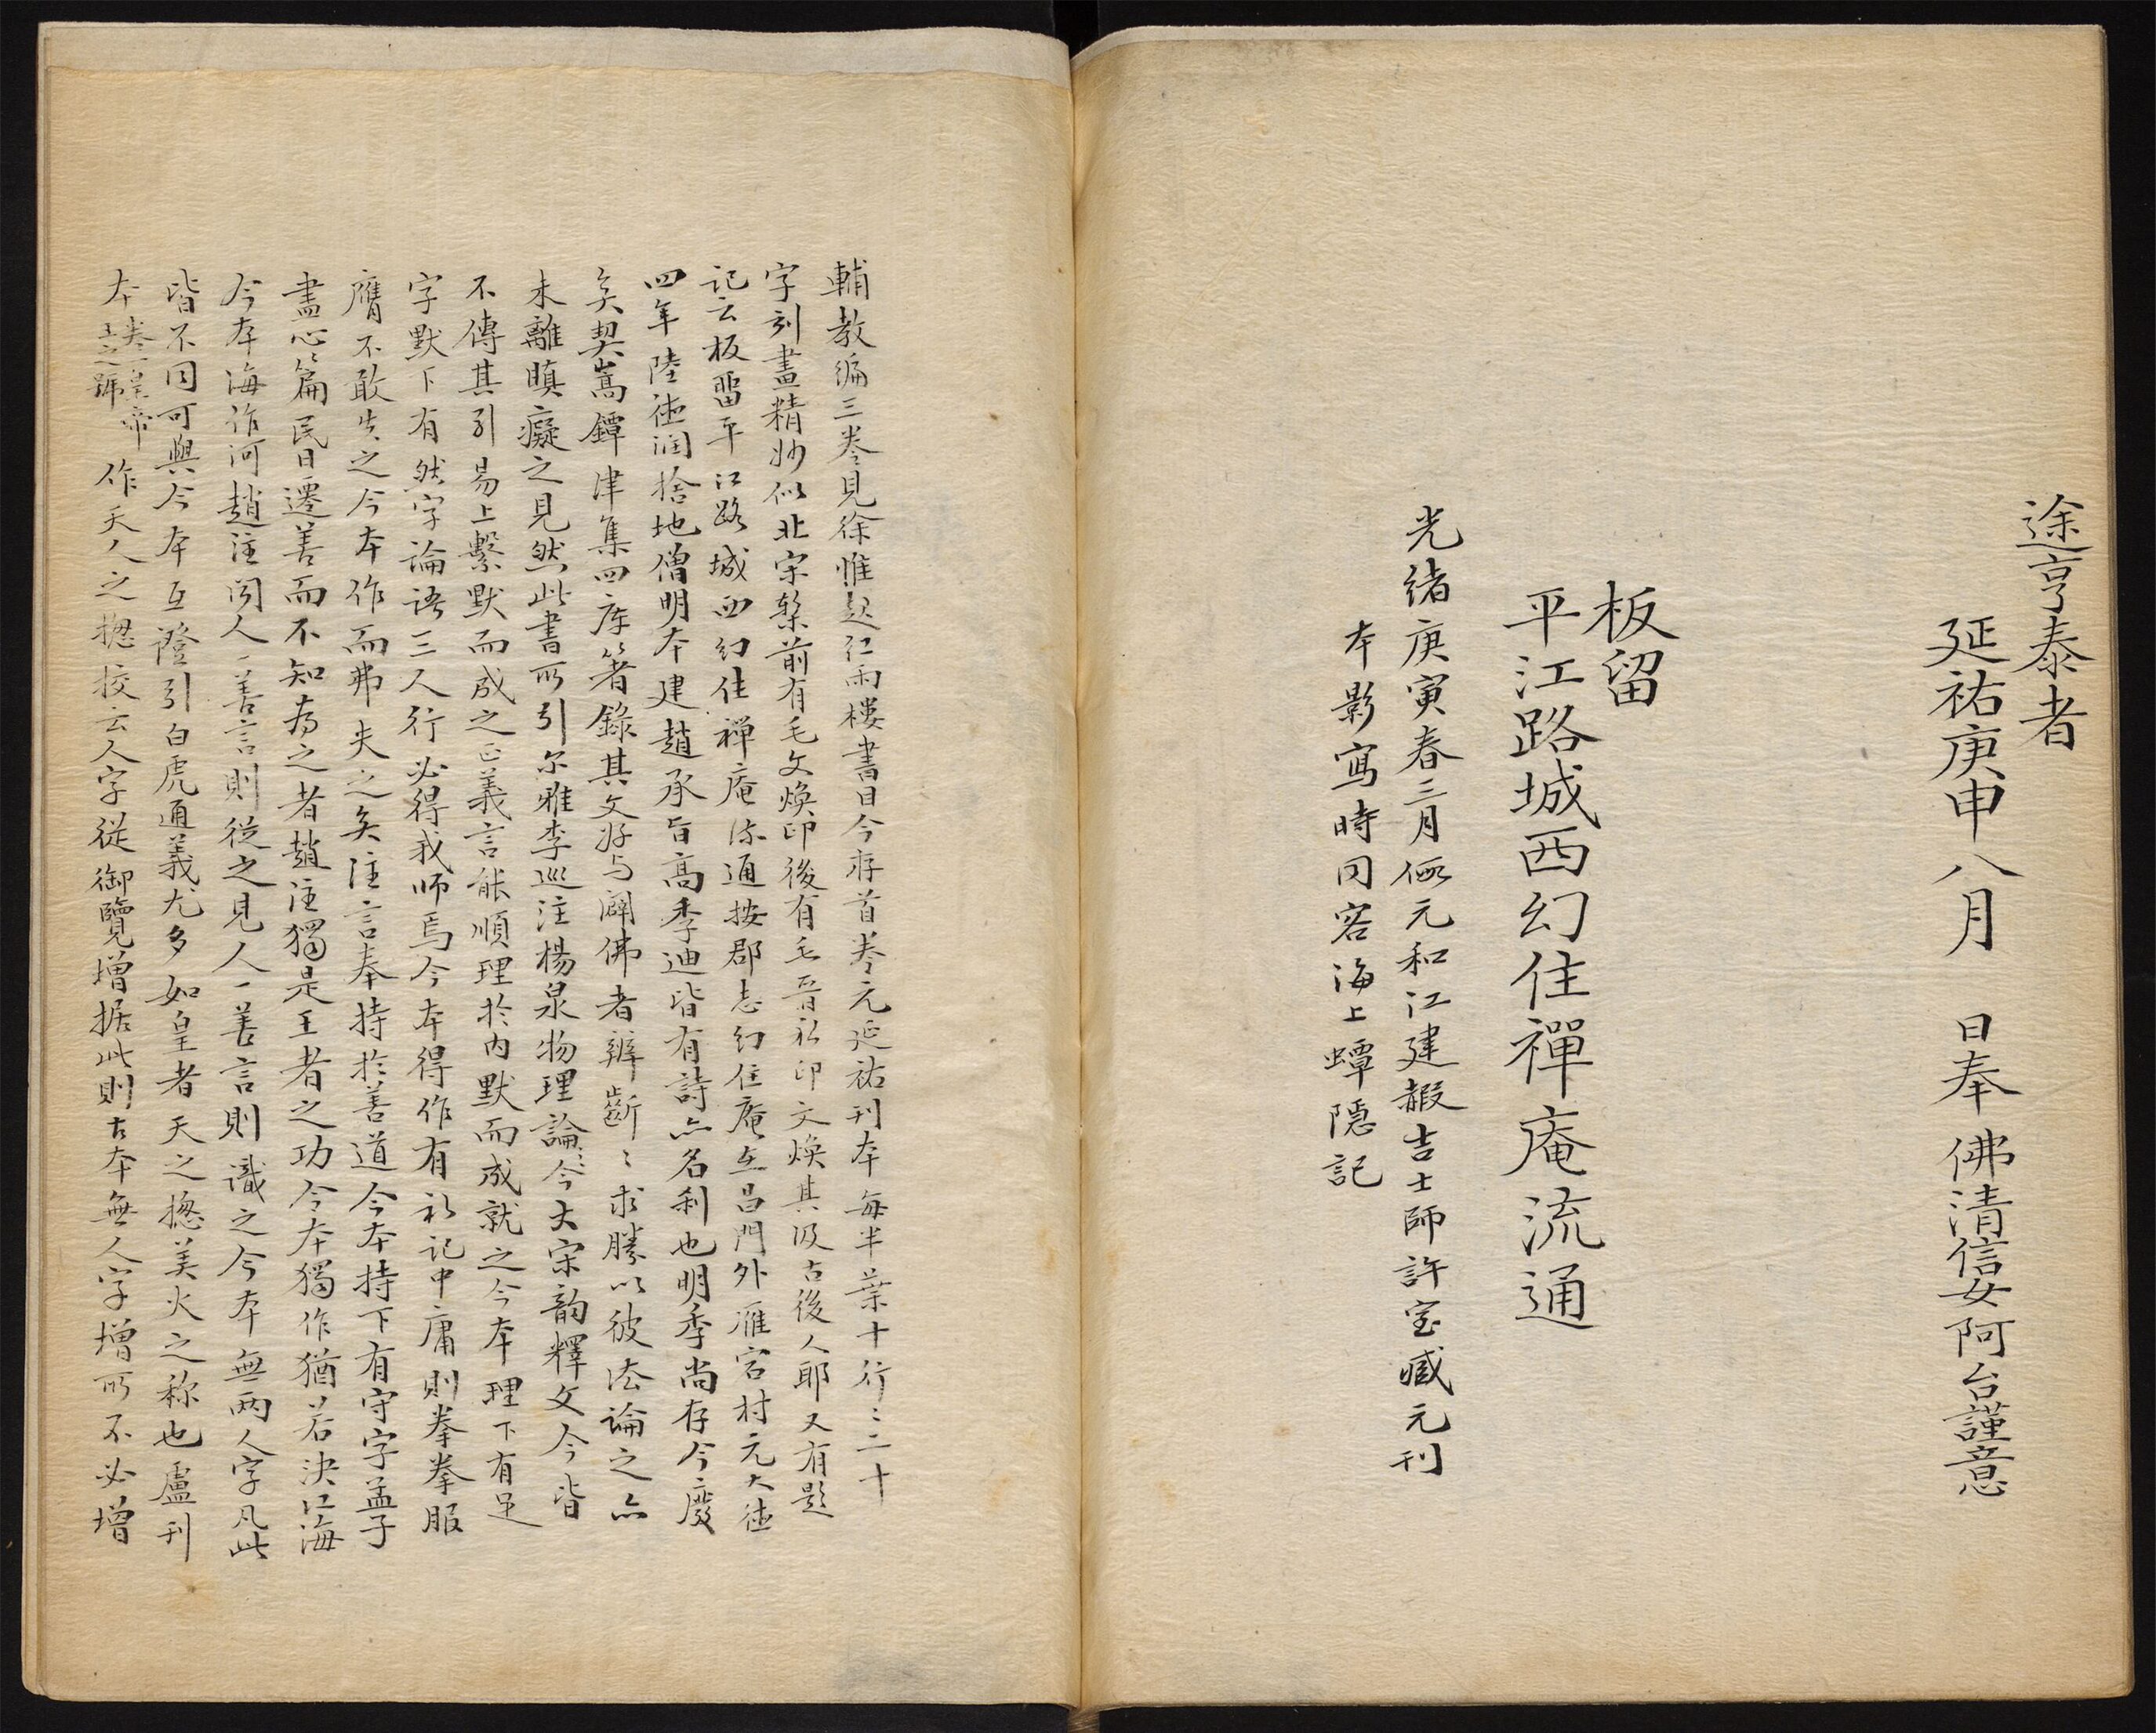 途亨泰者
延祐庚申八月　日奉佛清信女阿台謹意
板留
平江路城西幻住禪庵流通
光緒庚寅春三月假元和江建赮吉士師許室臧元刊
本影寫時同客海上蟫隠記
輔教編三卷見徐惟起紅雨樓書目今存首卷元延祐刊本每半葉十行〻二十
字刻畫精妙似北宋槧前有毛文煥印後有毛晉私印文煥其汲古後人耶又有題
記云板畱平江路城西幻住禪庵流通按郡志幻住庵在昌門外雁宕村元大德
四年陸德潤捨地僧明本建趙承旨高季迪皆有詩亦名刹也明季尚存今廢
矣契嵩鐔津集四库箸錄其文好与闢佛者辨齗〻求勝以彼法論之亦
未離瞋癡之見然此書所引尔雅李巡注楊泉物理論今大宋韵釋文今皆
不傳其引易上繫默而成之正義言能順理於內默而成就之今本理下有足
字默下有然字論語三人行必得我师焉今本得作有礼記中庸則拳拳服
膺不敢失之今本作而弗失之矣注言奉持於善道今本持下有守字孟子
盡心篇民日遷善而不知為之者趙注獨是王者之功今本獨作猶若決江海
今本海作河趙注聞人一善言則從之見人一善言則識之今本無兩人字凡此
皆不同可與今本互證引白虎通義尤多如皇者天之揔美火之称也盧刊
本卷一皇帝王之號作天人之揔挍云人字從御覽增据此則古本無人字增所不必增